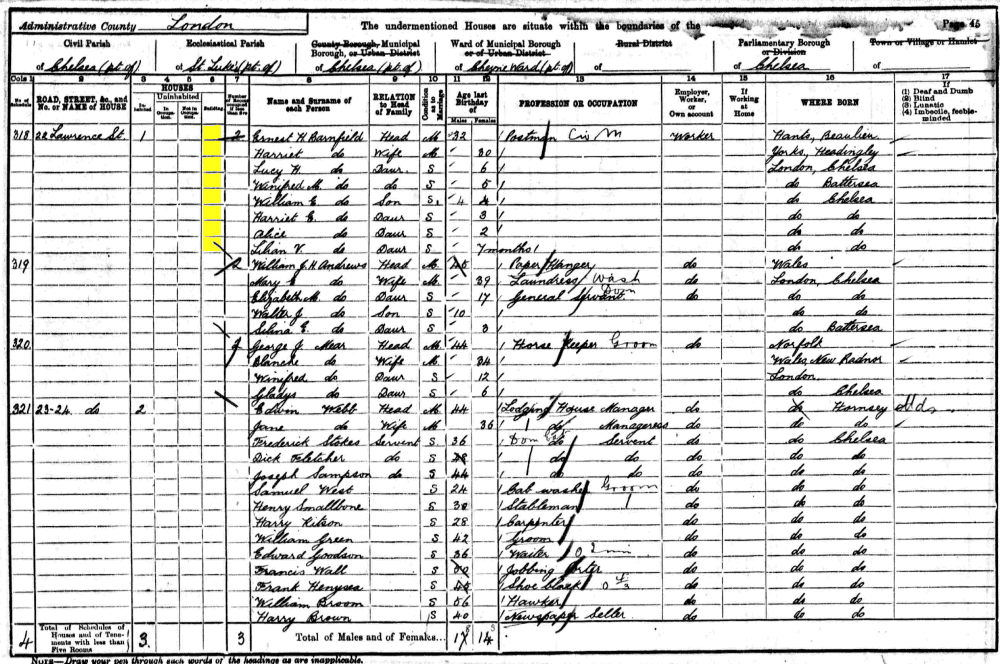 Administrative County London The undermentioned Houses are situate within the boundaries of the Page 45
Civil Parish Ecclesiastical Parish County Borough, Municipal Borough, or Urban District Ward of Municipal Borough or of Urban District Rural District Parliamentary Borough or Division Town or Village or Hamlet
of Chelsea (pt of) of St. Luke's (pt of) of Chelsea (pt of) of Cheyne Ward (pt of) of of Chelsea of
Cols 1 2 3 4 5 6 7 8 9 10 11 12 13 14 15 16 17
No. of Schedule ROAD, STREET, &c., and No. or NAME of HOUSE HOUSES Inhabited Uninhabited In Occupation Not in Occupation Building Number of Rooms occupied if less than five Name and Surname of each Person RELATION to Head of Family Condition as to Marriage Age last Birthday of Males Females PROFESSION OR OCCUPATION Employer, Worker, or Own account If Working at Home WHERE BORN If (1) Deaf and Dumb (2) Blind (3) Lunatic (4) Imbecile, feeble-minded
318 22 Lawrence St. 1 2 Ernest H Barnfield Head M 32 Postman Civ M Worker Hants, Beaulieu
Harriet do Wife M 30 Yorks, Headingley
Lucy H. do Daur. S 6 London, Chelsea
Winifred M. do do S 5 do Battersea
William E do Son S. 4 do Chelsea
Harriet E. do Daur S 3 do do
Alice do Daur S 2 do do
Lilian V. do Daur S 7 months do do
319 2 William J. H Andrews Head M 45 Paper Hanger do Wales
Mary E do Wife M. 39 Laundress Wash do London, Chelsea
Elizabeth M. do Daur S 17 General Servant Dom do do do
Walter J. do Son S 10 do do
Selina E. do Daur S 3 do Battersea
320 George J. Mear Head M 44 Horse Keeper Groom do Norfolk
Blanche do Wife M 34 Wales, New Radnor
Winifred do Daur S 12 London
Gladys do Daur S 6 do Chelsea
321 23-24 do 2 Edwin Webb Head M 44 Lodging House Manager do do Hornsey
Jane do Wife M 36 do Manageress do do do
Frederick Stokes Servent S. 36 Dom do Servent do do Chelsea
Dick Fletcher do S do do do do do
Joseph Sampson do S 44 do do do do do
Samuel West S 24 Cab washer Groom do do do
Henry Smallbone S 30 Stableman do do do
Harry Kitson S 28 Carpenter do do do
William Green S 42 Groom do do do
Edward Goodson S 36 Waiter do do do
Francis Wall S Jobbing Porter do do do
Frank Henysea S Shoe black do do do
William Broom S 56 Hawker do do do
Harry Brown S 40 Newspaper Seller do do do
4 Total of Schedules of Houses and of Tenements with less than Five Rooms 3 3 Total of Males and of Females... 17 14
NOTE—Draw your pen through such words of the headings as are inapplicable.